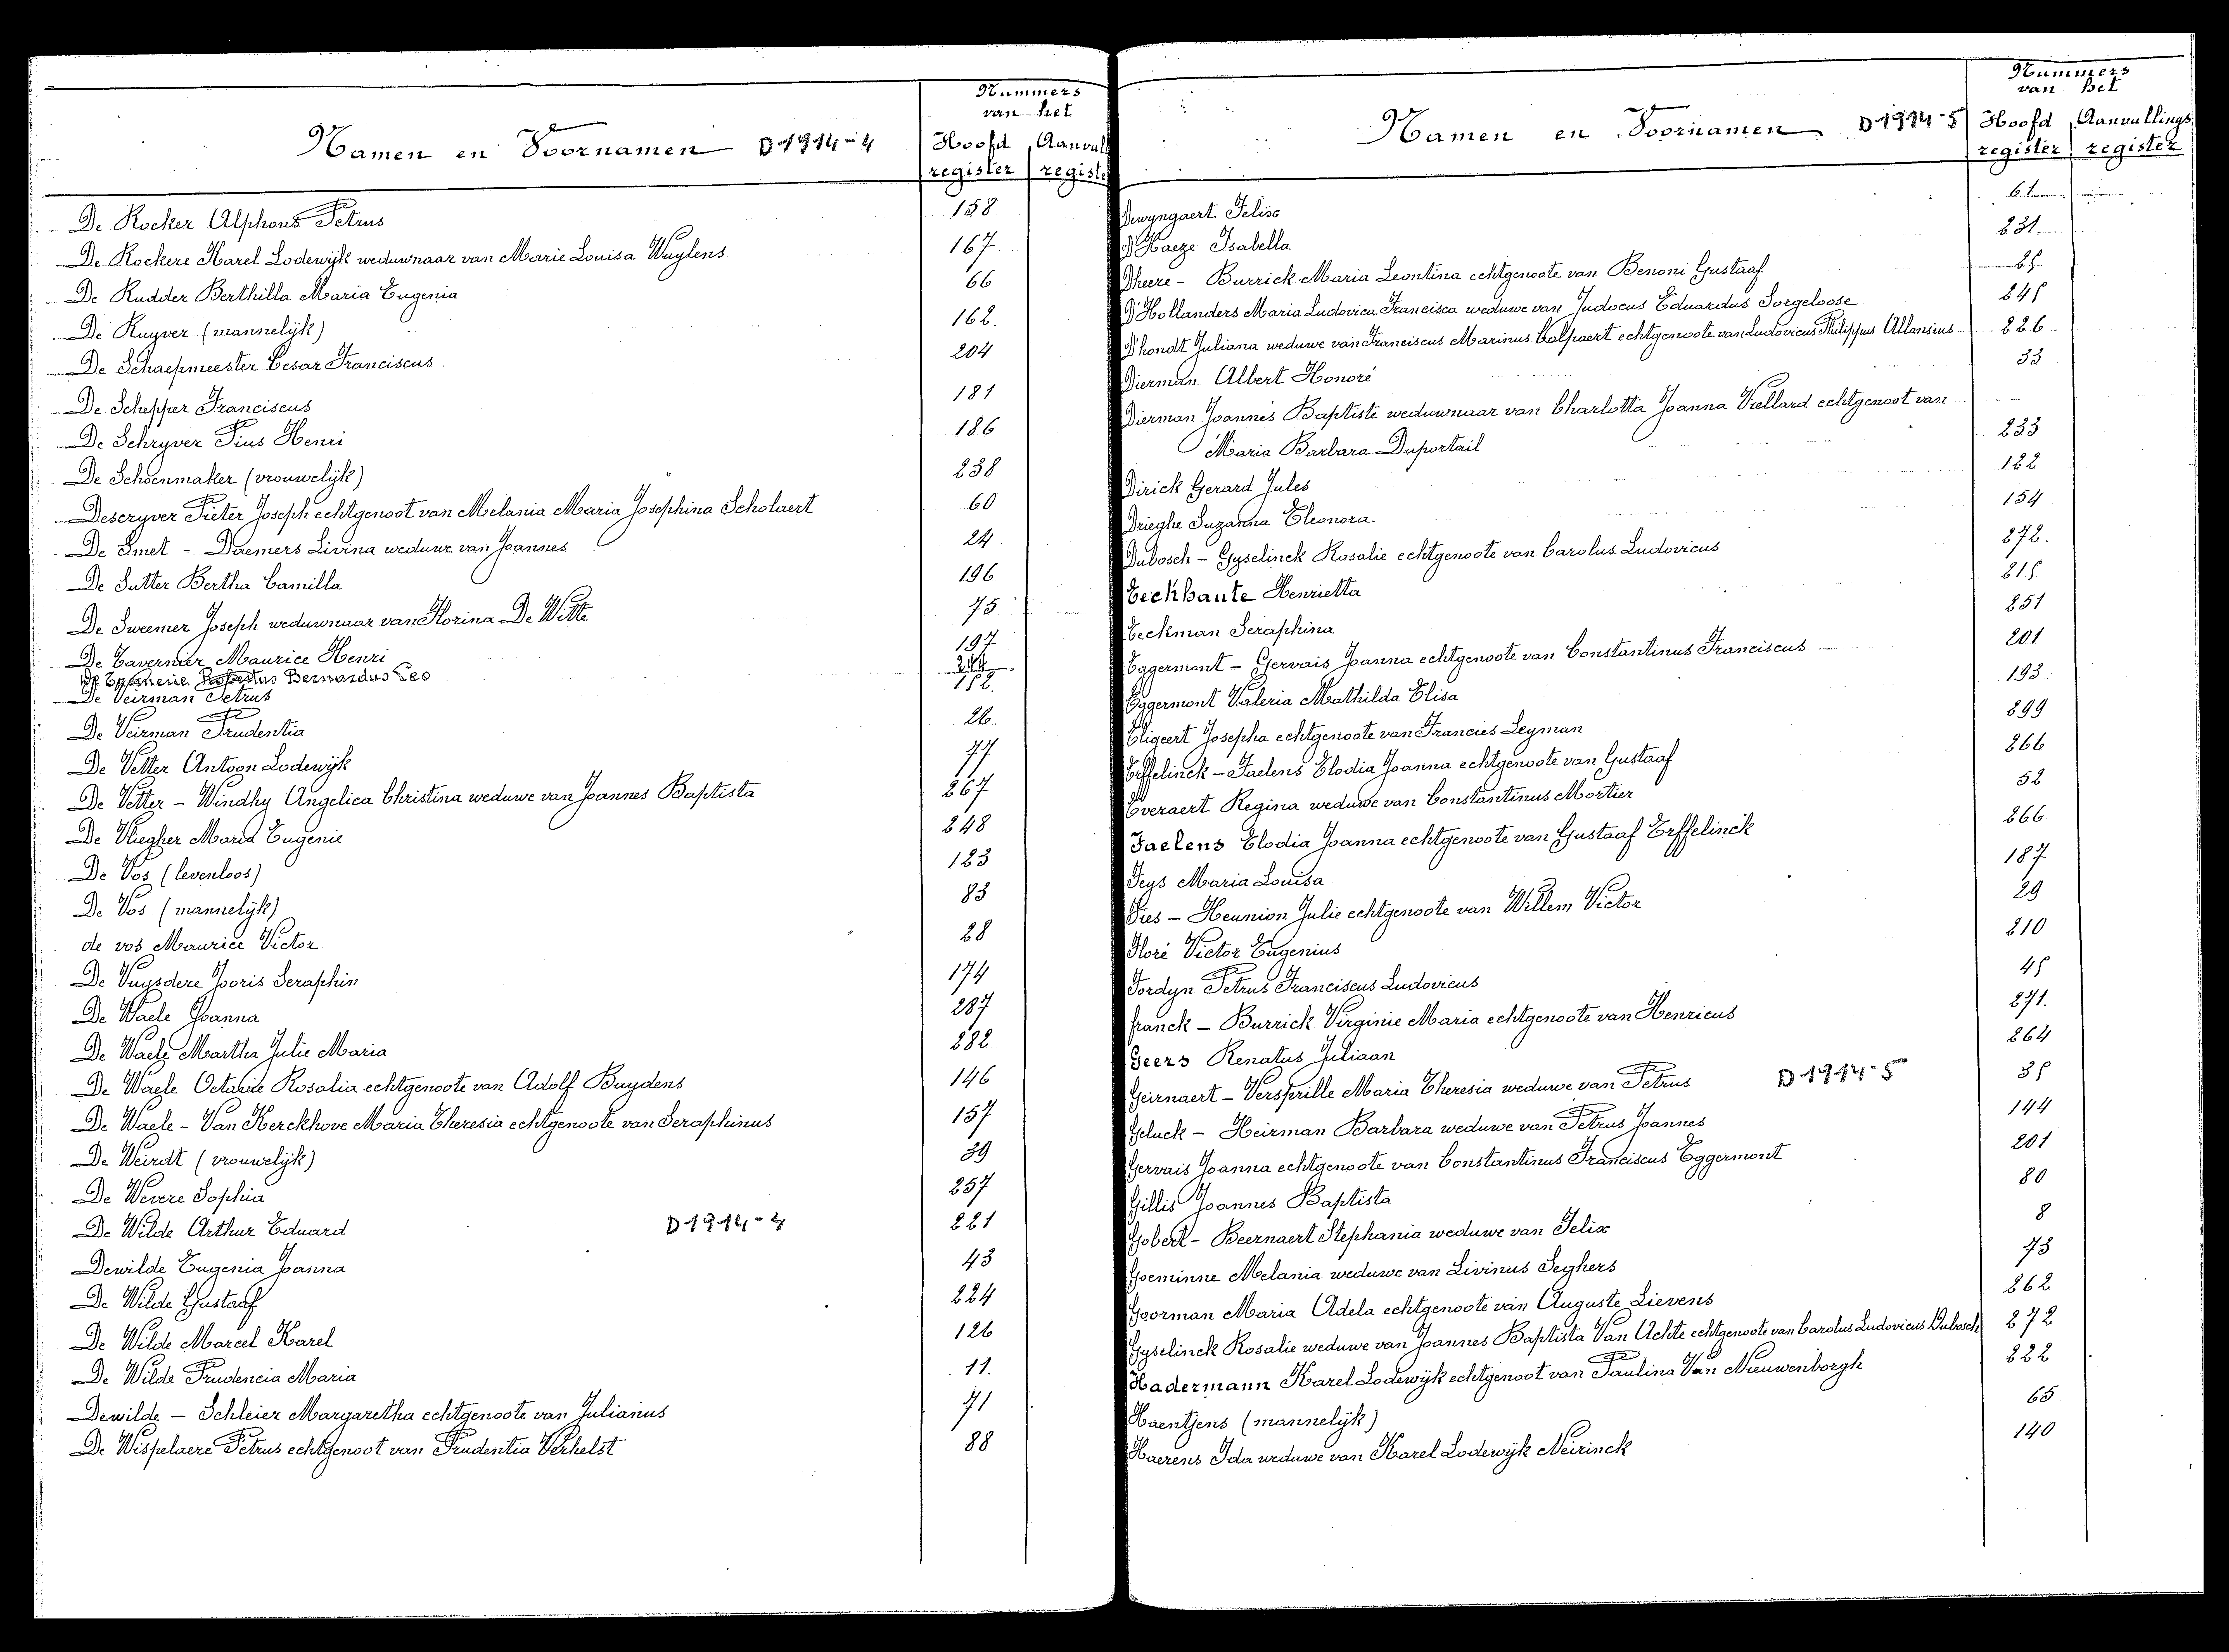 Nummers
van het
Namen en Voornamen D1914-4 Hoofd Aanvull
register registe
De Rocker Alphons Petrus 158
De Rockere Karel Lodewijk weduwnaar van Marie Louisa Wuylens 167
De Rudder Berthilla Maria Eugenia 66
De Ruyver (mannelijk) 162.
De Schaepmeester Cesar Franciscus 204
De Schepper Franciscus 181
De Schryver Pius Henri 186
De Schoenmaker (vrouwelijk) 238
Descryver Pieter Joseph echtgenoot van Melania Maria Josephina Scholaert 60
De Smet - Daemers Livina weduwe van Joannes 24.
De Sutter Bertha Camilla 196
De Sweemer Joseph weduwnaar van Florina De Witte 75
De Tavernier Maurice Henri 197
Robertus Bernardus Leo 244
De Veirman Petrus 152.
De Veirman Prudentia 26.
De Vetter Antoon Lodewijk 77
De Vetter - Windhy Angelica Christina weduwe van Joannes Baptista 267
De Vliegher Maria Eugenie 248
De Vos (levenloos) 123
De Vos (mannelijk) 83
de vos Maurice Victor 28
De Vuysdere Jooris Seraphin 174
De Waele Joanna 287
De Waele Martha Julie Maria 282
De Waele Octavie Rosalia echtgenoote van Adolf Buydens 146
De Waele - Van Kerckhove Maria Theresia echtgenoote van Seraphinus 157
De Weirdt (vrouwelijk) 39
De Wevere Sophia 257
De Wilde Arthur Eduard D1914-4 221
Dewilde Eugenia Joanna 43
De Wilde Gustaaf 224
De Wilde Marcel Karel 126
De Wilde Prudencia Maria 11.
Dewilde - Schleier Margaretha echtgenoote van Julianus 71
De Wispelaere Petrus echtgenoot van Prudentia Verhelst 88
Nummers
van het
Namen en Voornamen D1914-5 Hoofd Aanvullings
register register
Dewyngaert Felix 61
D'Haeze Isabella 231.
Dheere - Burrick Maria Leontina echtgenoote van Benoni Gustaaf 25
D'Hollanders Maria Ludovica Francisca weduwe van Judocus Eduardus Sorgeloose 245
D'hondt Juliana weduwe van Franciscus Marinus Galpaert echtgenoote van Ludovicus Philippus Allonsius 226
Dierman Albert Honoré 33
Dierman Joannes Baptiste weduwnaar van Charlotta Joanna Viellard echtgenoot van
Maria Barbara Duportail 233
Dirick Gerard Jules 122
Drieghe Suzanna Eleonora. 154
Dubosch - Gyselinck Rosalie echtgenoote van Carolus Ludovicus 272.
Eeckhaute Henrietta 215
Eeckman Seraphina 251
Eggermont - Gervais Joanna echtgenoote van Constantinus Franciscus 201
Eggermont Valeria Mathilda Elisa 193
Eligeert Josepha echtgenoote van Francies Leyman 299
Erffelinck - Faelens Elodia Joanna echtgenoote van Gustaaf 266
Everaert Regina weduwe van Constantinus Mortier 52
Faelens Elodia Joanna echtgenoote van Gustaaf Erffelinck 266
Feys Maria Louisa 187
Fies - Heunion Julie echtgenoote van Willem Victor 29
Floré Victor Eugenius 210
Fordyn Petrus Franciscus Ludovicus 45
franck - Burrick Virginie Maria echtgenoote van Henricus 271.
Geers Renatus Juliaan 264
Geirnaert - Versprille Maria Theresia weduwe van Petrus D1914-5 35
Geluck - Heirman Barbara weduwe van Petrus Joannes 144
Gervais Joanna echtgenoote van Constantinus Franciscus Eggermont 201
Gillis Joannes Baptista 80
Gobert - Beernaert Stephania weduwe van Felix 8
Goeminne Melania weduwe van Livinus Seghers 73
Goorman Maria Adela echtgenoote van Auguste Lievens 262
Gyselinck Rosalie weduwe van Joannes Baptista Van Achte echtgenoote van Carolus Ludovicus Dubosch 272
Hadermann Karel Lodewijk echtgenoot van Paulina Van Nieuwenborgh 222
Haentjens (mannelijk) 65
Haerens Ida weduwe van Karel Lodewijk Neirinck 140